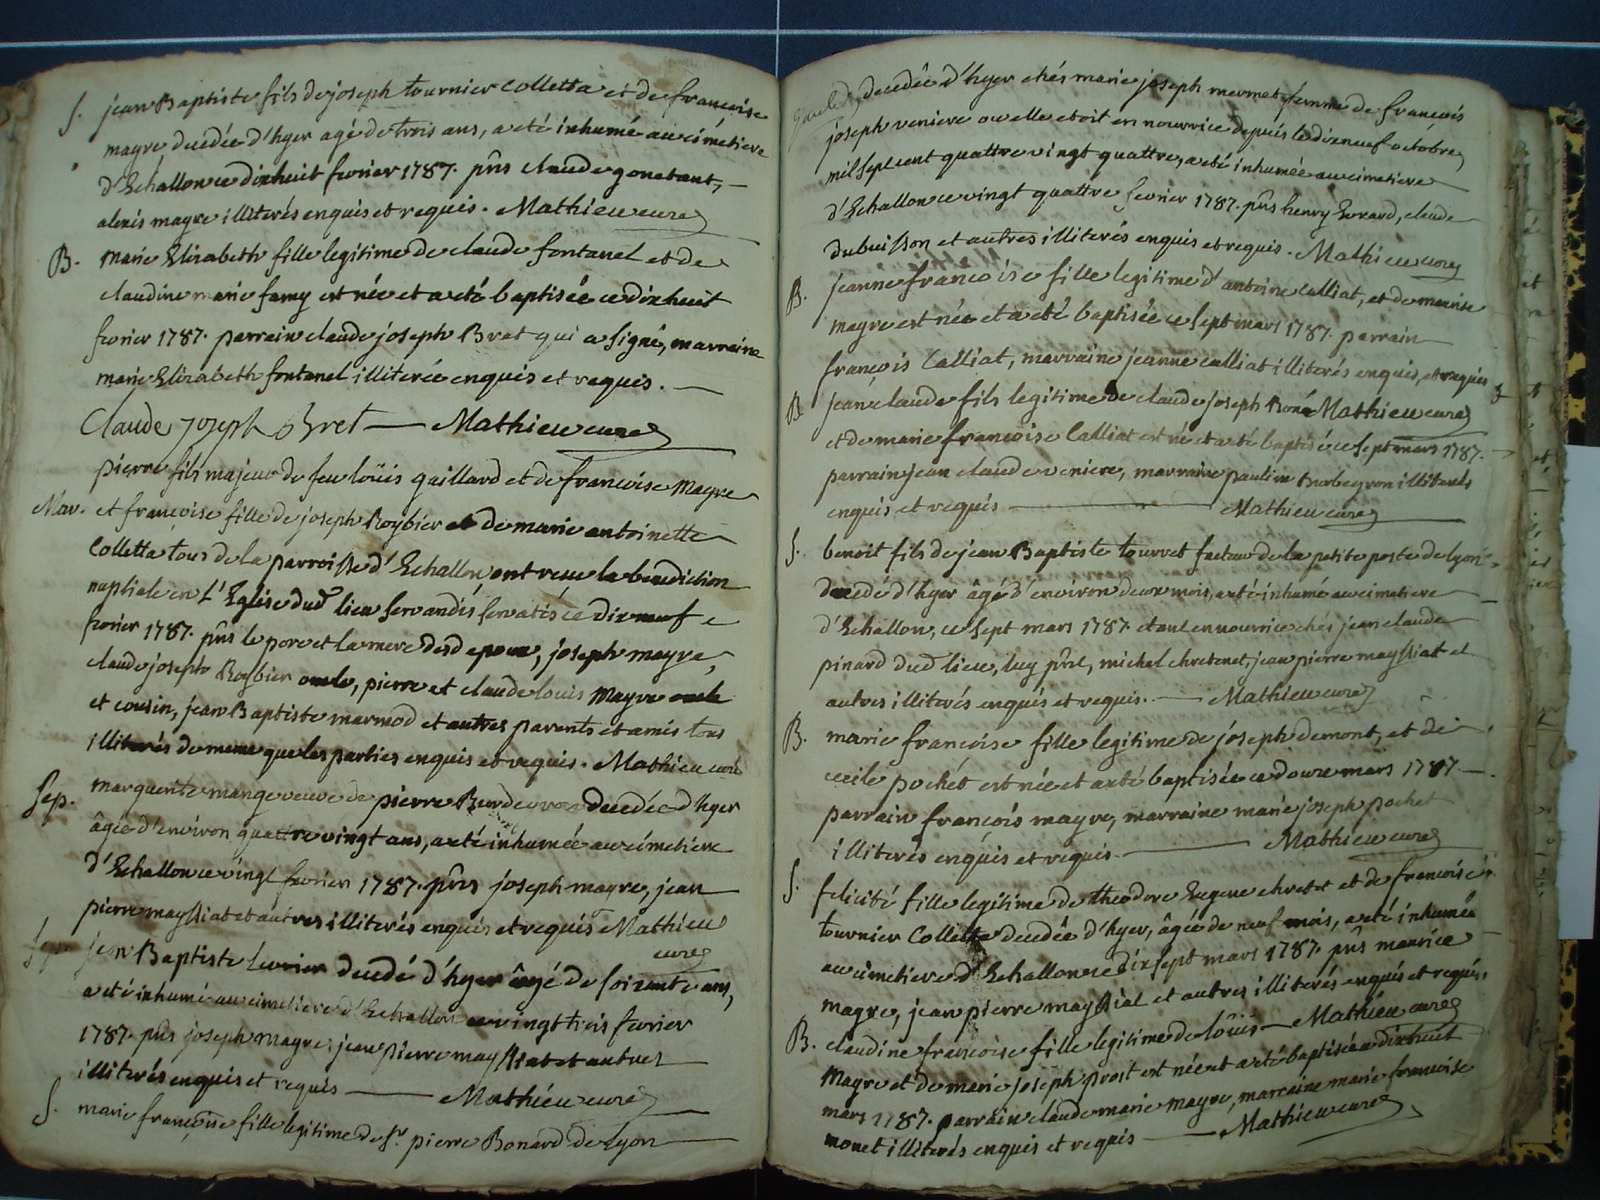 S. jean Baptiste fils de joseph tournier colletta et de francoise
magre decedée d'hyer agé de trois ans, a eté inhumé au cimetiere
d'Echallon ce dixhuit fevrier 1787. pñs claude gonetant,
alexis magre illiterés enquis et requis. Mathieu curé
B. marie Elizabeth fille legitime de claude fontanel et de
claudine marie famy est née et a eté baptisée ce dixhuit
fevrier 1787. parrain claude joseph Bret qui a signé, marraine
marie Elizabeth fontanel illiterée enquis et requis.
Claude joseph Bret Mathieu curé
pierre fils majeur de feu loüis gaillard et de francoise Magre
Mar. et françoise fille de joseph Roybier et de marie antoinette
Colletta tous de la parroisse d'Echallon ont recu la benediction
nuptiale en L'Eglise dud lieu servandis servatis ce dixneuf
fevrier 1787. pñs le pere et la mere desd epoux, joseph magre,
claude joseph Roybier oncle, pierre et claude louis Magre oncle
et cousin, jean Baptiste marmod et autres parents et amis tous
illiterés de meme que les parties enquis et requis. Mathieu curé
Sep. marguerite mange veuve de pierre decedée d'hyer
âgée d'environ quattre vingt ans, a eté inhumée au cimetiere
d'Echallon ce vingt fevrier 1787. pñs joseph magre, jean
pierre mayssiat et autres illiterés enquis et requis Mathieu
curé
Sep. jean Baptiste decedé d'hyer âgé de soixante ans,
a eté inhumé au cimetiere d'Echallon ce vingt trois fevrier
1787. pñs joseph magre, jean pierre mayssiat et autres
illiterés enquis et requis Mathieu curé
S. marie françoise fille legitime de Sr. pierre Bonard de Lyon
decedée d'hyer chés marie joseph mermet femme de francois
joseph veniere ou elle etoit en nourrice depuis le dixneuf octobre
mil sept cent quattre vingt quattre, a eté inhumée au cimetiere
d'Echallon ce vingt quattre fevrier 1787. pñs henry Evrard, claude
dubuisson et autres illiterés enquis et requis. Mathieu curé
B. jeanne francoise fille legitime d'antoine calliat, et de maurise
magre est née et a eté baptisée ce sept mars 1787. parrain
françois Calliat, marraine jeanne calliat illiterés enquis, et requis
B. jean claude fils legitime de claude joseph Mathieu curé
et de marie francoise Calliat est né et a eté baptisé ce sept mars 1787.
parrain jean claude veniere, marraine pauline burdeyron illiterés
enquis et requis Mathieu curé
S. benoit fils de jean Baptiste tourret facteur de la petite poste de Lyon
decedé d'hyer âgé d'environ deux mois, a eté inhumé au cimetiere
d'Echallon, ce sept mars 1787 etant en nourrice chés jean claude
pinard dud lieu, luy pñt, michel chretenet, jean pierre mayssiat et
autres illiterés enquis et requis. Mathieu curé
B. marie francoise fille legitime de joseph demont, et de
cecile pochet est née et a eté baptisée ce douze mars 1787
parrain françois magre, marraine marie joseph pochet
illiterés enquis et requis. Mathieu curé
S. felicité fille legitime de theodore Eugene chretet et de francoise
tournier Colletta decedée d'hyer, âgée de neuf mois, a eté inhumée
au cimetiere d'Echallon ce dixsept mars 1787. pñs maurice
magre, jean pierre mayssiat et autres illiterés enquis et requis.
B. claudine françoise fille legitime de loüis Mathieu curé
Magre et de marie joseph prost est née et a eté baptisée ce dixhuit
mars 1787. parrain claude marie magre, marraine marie francoise
monet illiterés enquis et requis Mathieu curé